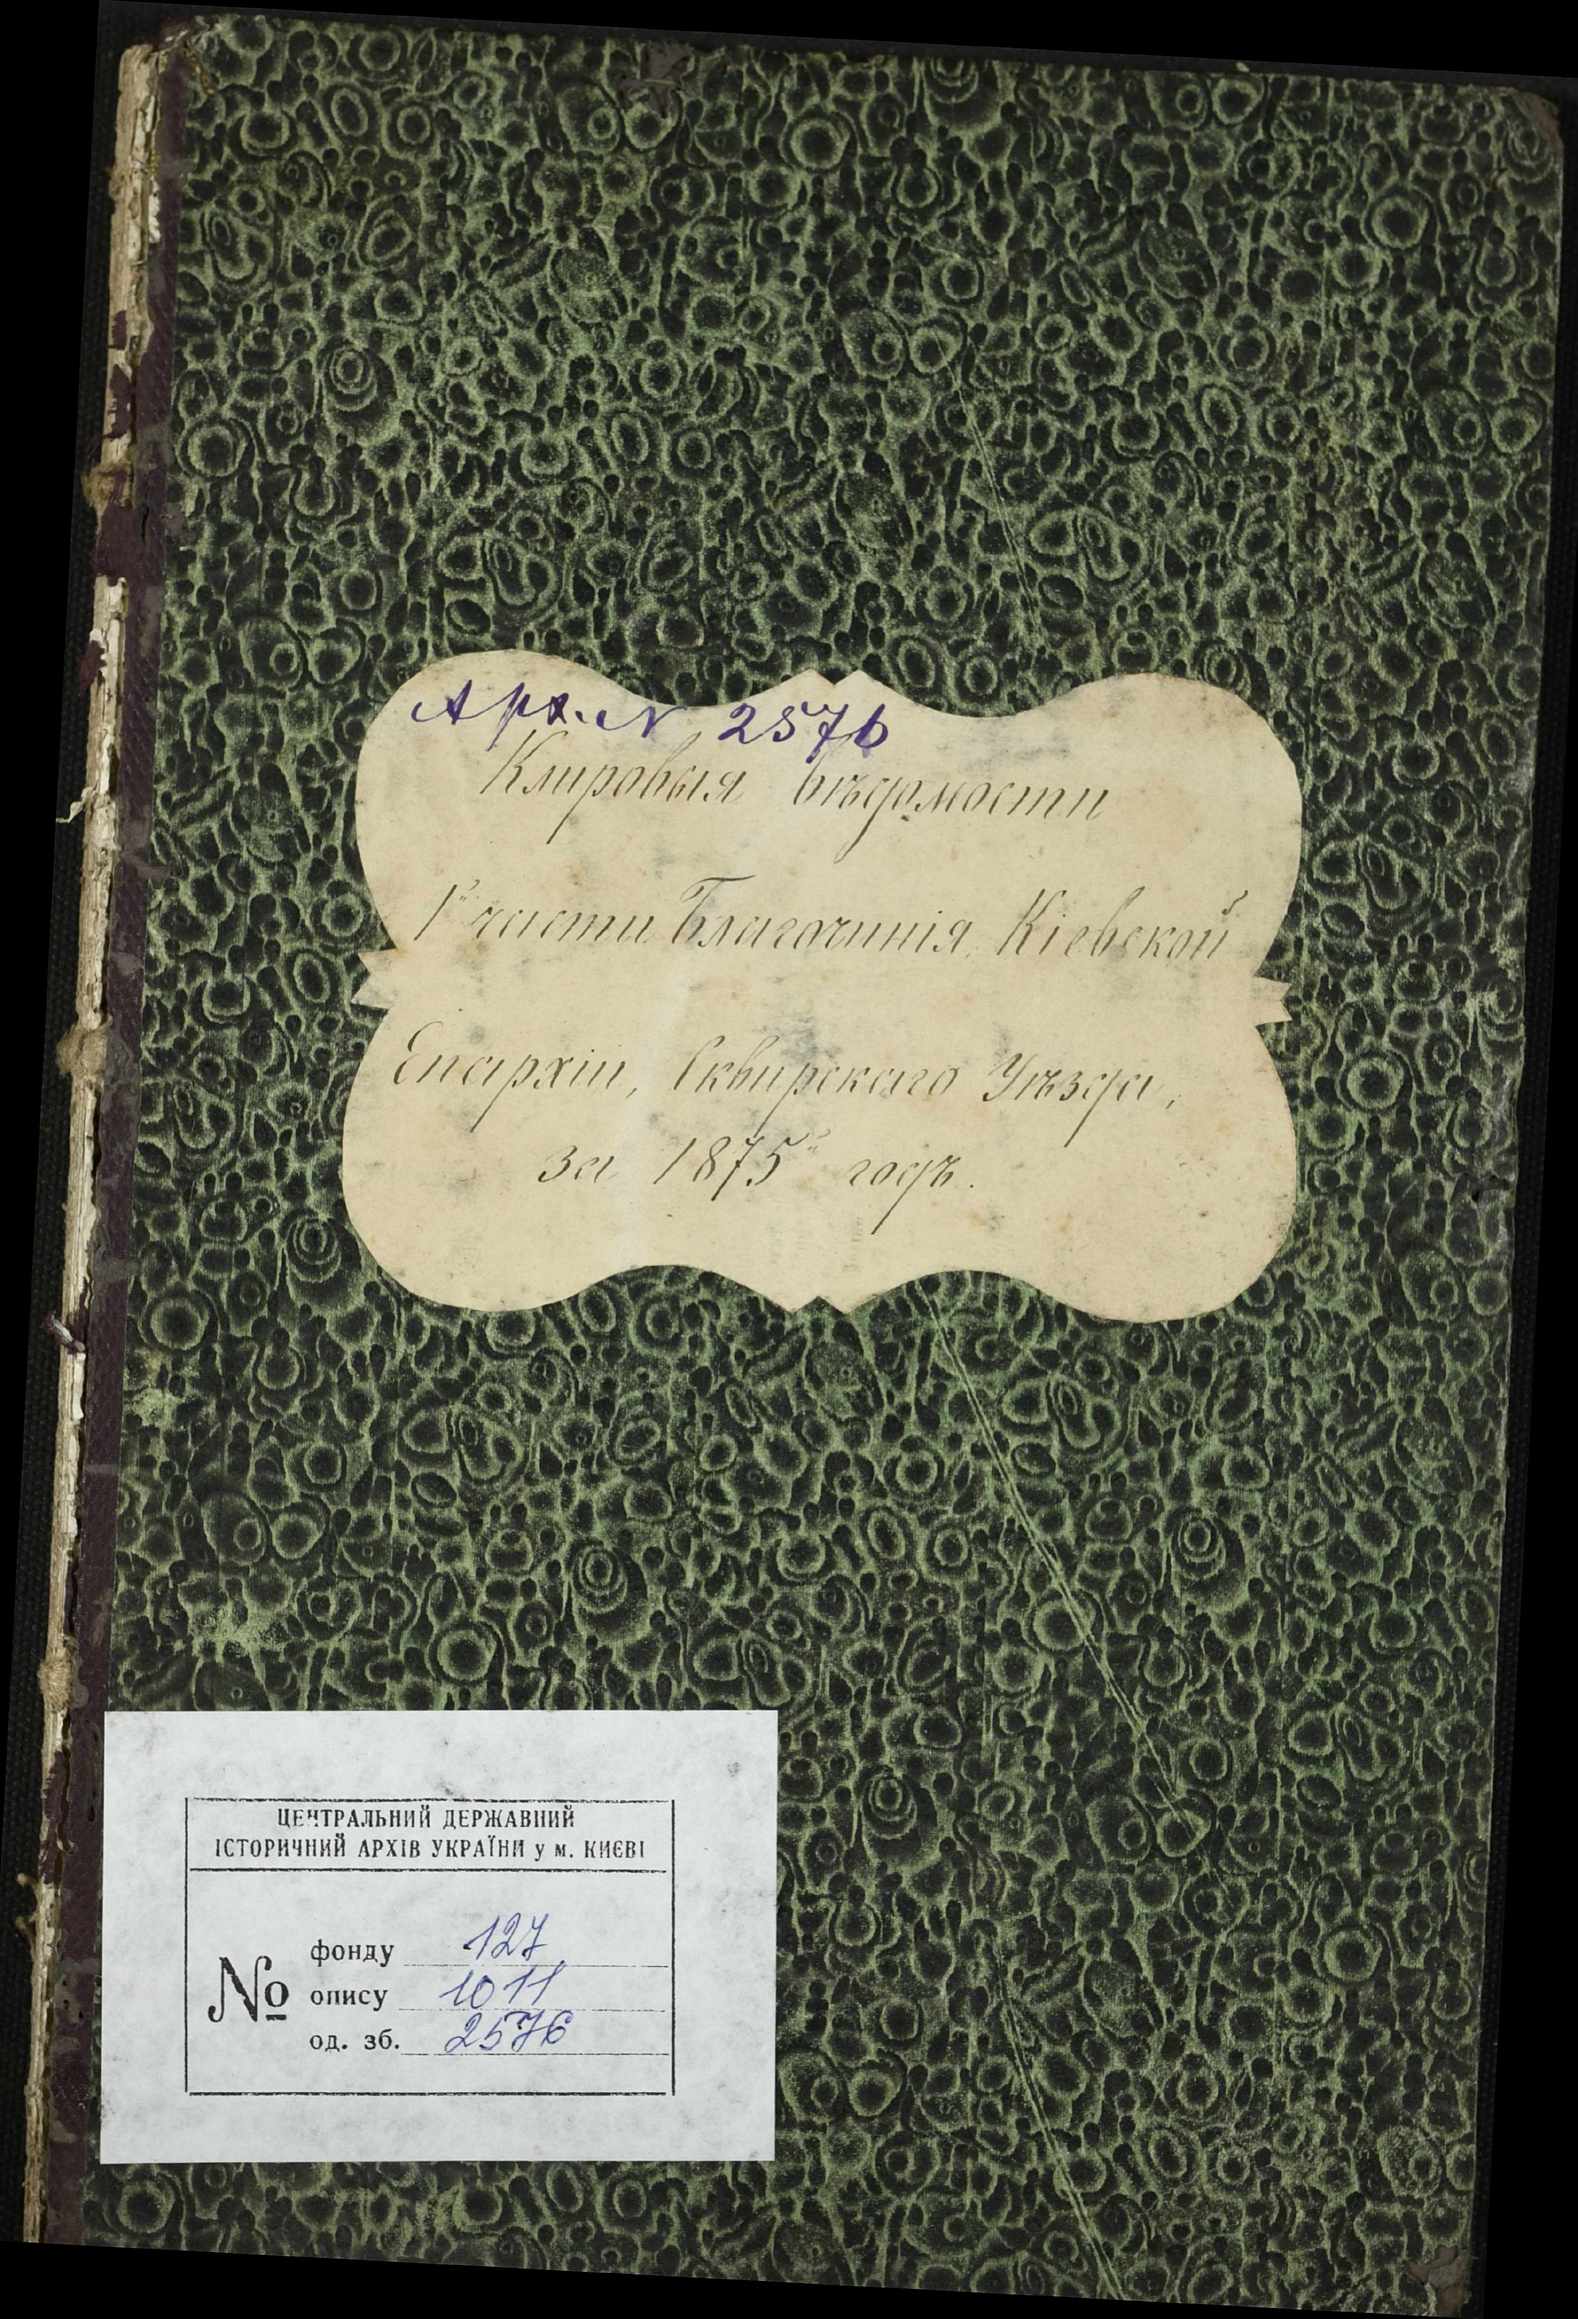 Арх. № 2576
Клировыя вѣдомости
1й части Благочинія, Кіевской
Епархіи, Сквирскаго Уѣзда,
за 1875й годъ.
ЦЕНТРАЛЬНИЙ ДЕРЖАВНИЙ
ІСТОРИЧНИЙ АРХІВ УКРАЇНИ у м. КИЄВІ
№
фонду 127
опису 1011
од. зб. 2576